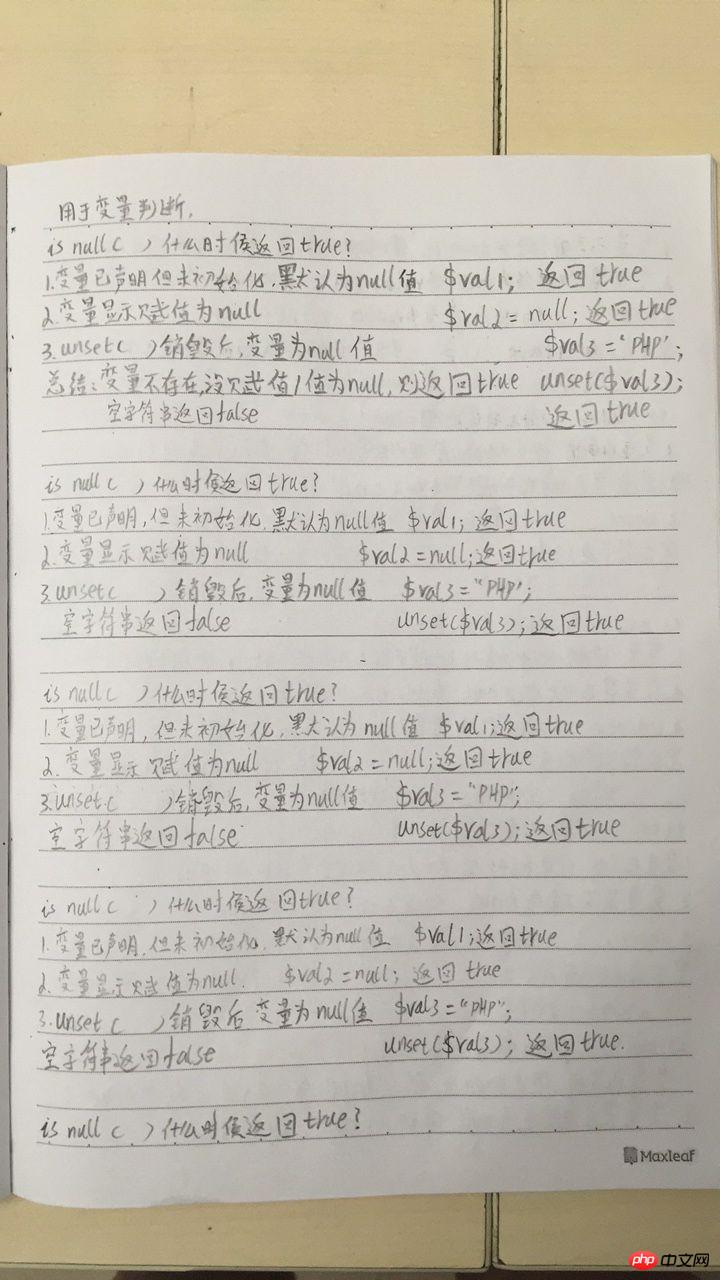 用于变量判断.
is null( )什么时候返回true?
1.变量已声明但未初始化,默认为null值 $val1; 返回true
2.变量显示赋值为null $val2=null;返回true
3.unset( )销毁后,变量为null值 $val3='PHP';
总结:变量不存在,没赋值/值为null,则返回true unset($val3);
空字符串返回false 返回true
is null( )什么时候返回true?
1.变量已声明,但未初始化,默认为null值 $val1;返回true
2.变量显示赋值为null $val2=null;返回true
3.unset( )销毁后,变量为null值 $val3="PHP';
空字符串返回false unset($val3);返回true
is null( )什么时候返回true?
1.变量已声明,但未初始化,默认为null值 $val1;返回true
2.变量显示赋值为null $val2=null;返回true
3.unset( )销毁后,变量为null值 $val3="PHP";
空字符串返回false unset($val3);返回true
is null( )什么时候返回true?
1.变量已声明,但未初始化,默认为null值 $val1;返回true
2.变量显示赋值为null. $val2=null; 返回true
3.unset( )销毁后 变量为null值 $val3="PHP";
空字符串返回false unset($val3); 返回true.
is null( )什么时候返回true?
Maxleaf
php 中文网